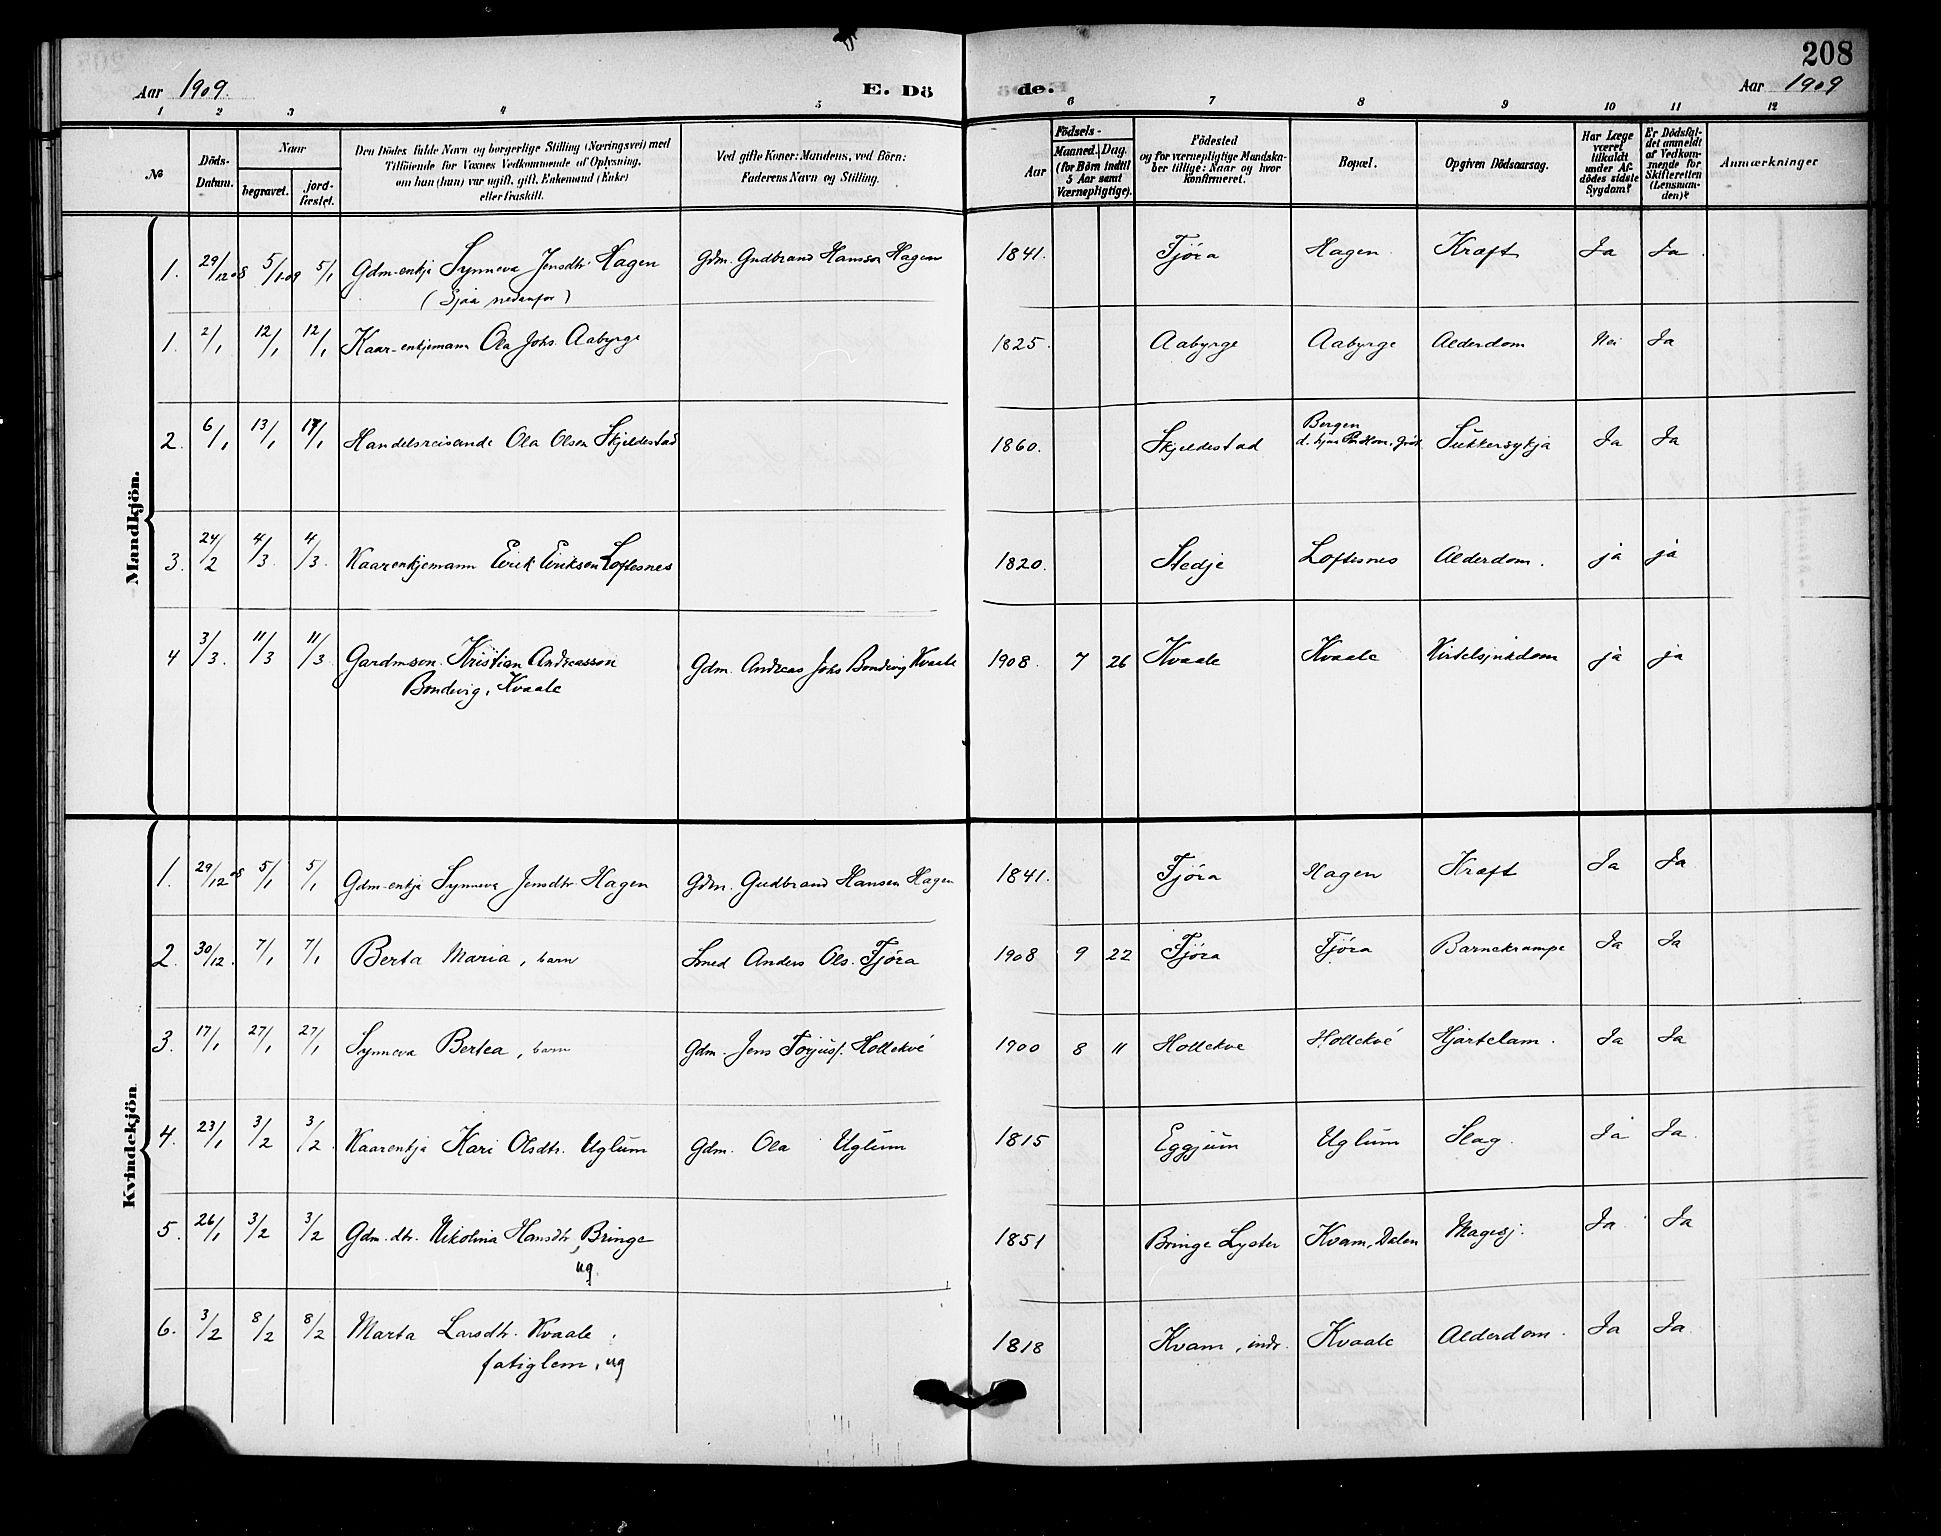 208
Aar 1909. E. Dö
de. Aar 1909
1 2 3 4 5 6 7 8 9 10 11 12
№
Döds-
Datum.
Naar
begravet.
jord-
fæstet.
Den Dödes fulde Navn og borgerlige Stilling (Næringsvei) med
Tilföiende for Voxnes Vedkommende af Oplysning,
om han (hun) var ugift, gift, Enkemand (Enke)
eller fraskilt.
Ved gifte Koner: Mandens, ved Börn:
Faderens Navn og Stilling.
Födsels-
Aar
Maaned. Dag.
(for Börn indtil
5 Aar samt
Værnepligtige).
Födested
og for værnepligtige Mandska-
ber tillige: Naar og hvor
konfirmeret.
Bopæl.
Opgiven Dödsaarsag.
Har Læge
været
tilkaldt
under Af-
dödes sidste
Sygdom?
Er Dödsfal-
det anmeldt
af Vedkom-
mende for
Skifteretten
(Lensman-
den)?
Anmærkninger
Mandkjön.
1. 29/12 08 5/1 09 5/1 Gdm-enkje Synneva Jensdtr. Hagen Gdm. Gudbrand Hansson Hagen 1841. Fjöra Hagen Kræft Ja Ja
(Sjaa nedanfor)
1. 2/1 12/1 12/1 Kaar-enkjemann Ola Johs. Aabyrge 1825. Aabyrge Aabyrge Alderdom Nei Ja
2. 6/1 13/1 17/1 Handelsreisande Ola Olsen Skjeldestad 1860. Skjeldestad Bergen Sukkersykja Ja Ja
3. 24/2 4/3 4/3. Kaarenkjemann Eirik Eirikson Loftesnes 1820. Stedje Loftesnes Alderdom. ja ja
4 3/3. 11/3 11/3 Gardmson. Kristian Andreasson Gdm. Andreas Johs Bondevig Kvaale 1908. 7 26 Kvaale Kvaale Kirtelsjukdom ja ja
Bondevig, Kvaale
Kvindekjön
1. 29/12 08 5/1 5/1 Gdm-enkje Synneva Jensdtr. Hagen Gdm. Gudbrand Hansen Hagen 1841. Fjöra Hagen Kræft Ja Ja
2. 30/12. 7/1 7/1 Berta Maria, barn Smed Anders Ols. Fjöra 1908 9 22 Fjöra Fjöra Barnekrampe Ja Ja
3. 17/1 27/1 27/1 Synneva Bertea, barn Gdm. Jens Torjusf. Hollekve 1900 8 11 Hollekve Hollekve Hjartelam. Ja Ja
4. 23/1 3/2 3/2. Kaarenkja Kari Olsdtr. Uglum Gdm. Ola Uglum 1815 Eggjum Uglum Slag. Ja Ja.
5. 26/1 3/2 3/2 Gdm.dtr. Nikolina Hansdtr, Bringe 1851 Bringe Lyster Kvam, Dalen Magesj. Ja. Ja
ug.
6. 3/2 8/2 8/2 Marta Larsdtr. Kvaale, 1818 Kvam, indr. Kvaale Alderdom. Ja Ja.
fatiglem, ug